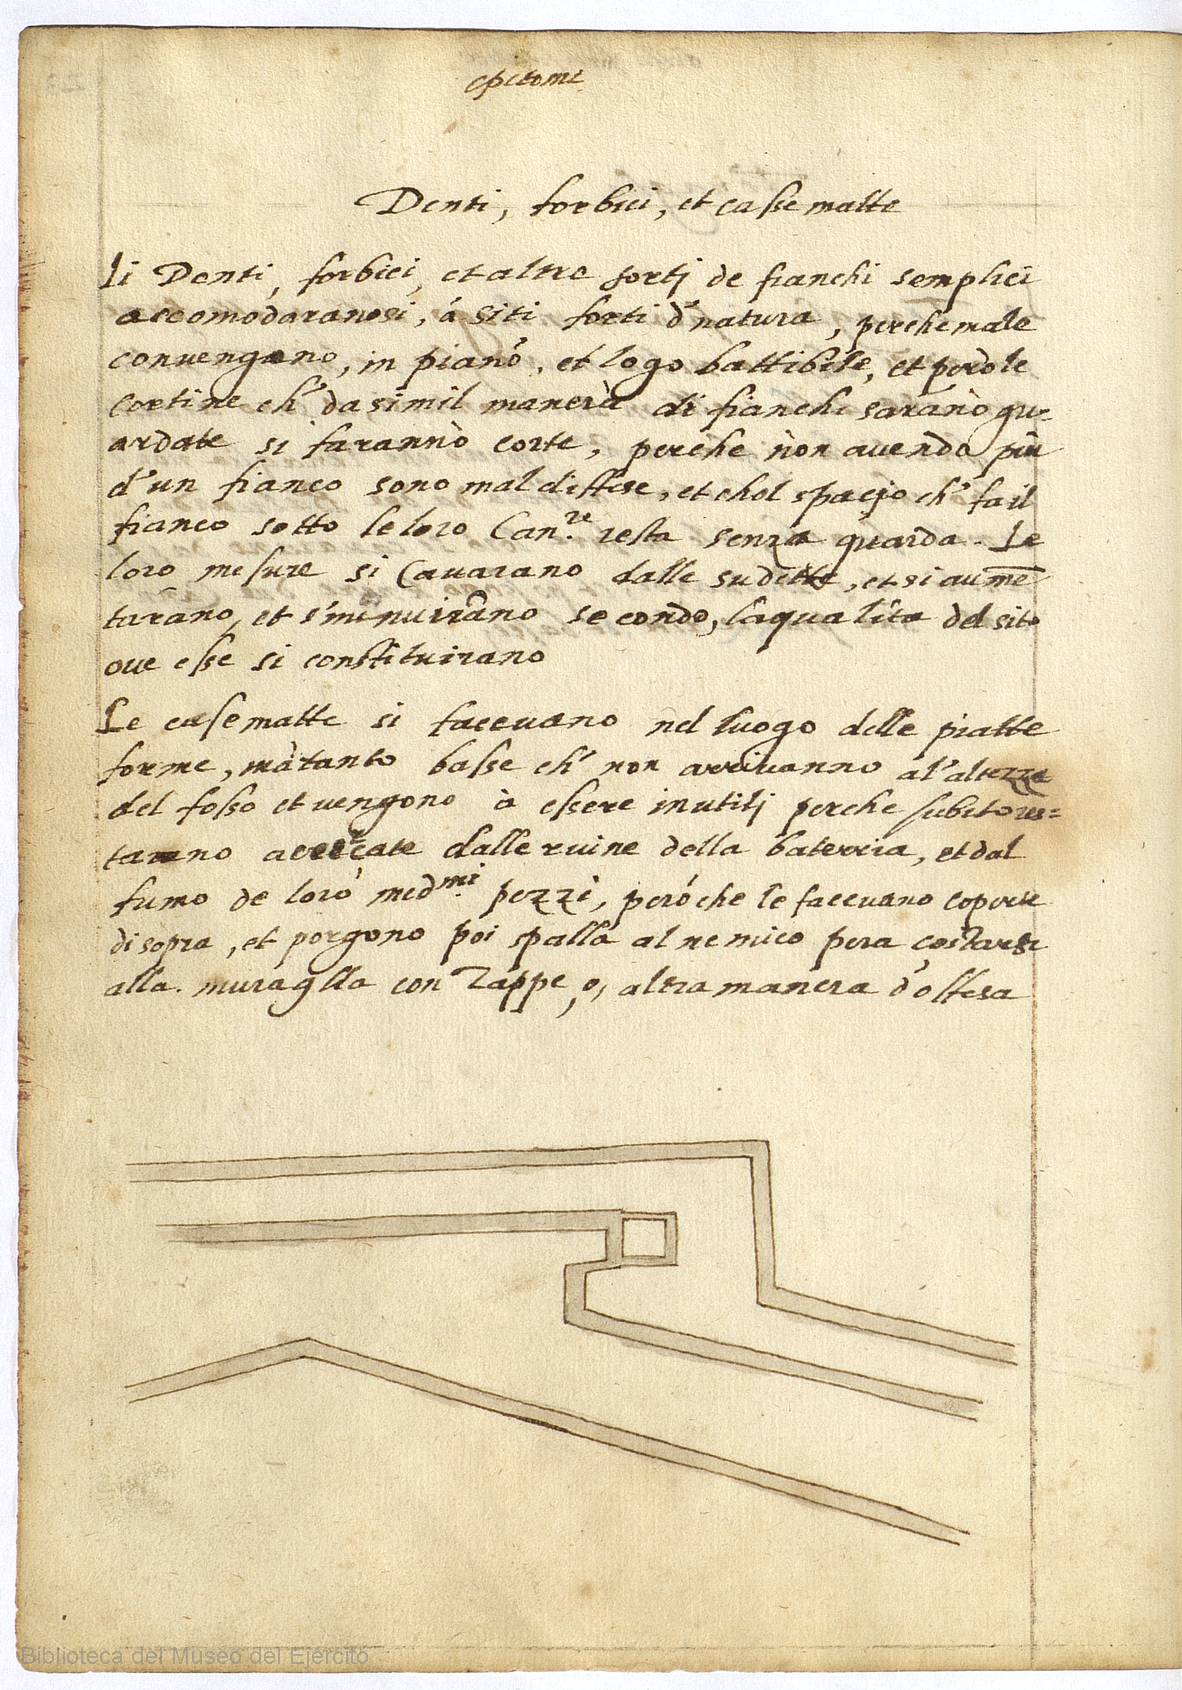 epitome
Denti, forbici, et casse matte
li Denti, forbici, et altre sorti de fianchi semplici
accomodaranosi, á siti forti d' natura, perche male
convengono, in piano, et logo battibile, et però le
cortine ch' da simil manera di fianchi saranò gu-
ardate si farannò corte, perche non avendo più
d'un fianco sono mal diffese, et chol spacio ch' fa il
fianco sotto le loro Can.re resta senza guarda. Le
loro mesure si Cavarano dalle sudette, et si aumē
tarano, et s'minuirano secondo, la qualita del sito
ove esse si constituirano
Le casematte si facevano nel luogo delle piatte
forme, mà tanto basse ch' non arrivanno al'altezza
del fosso et vengono à essere inutilj perche subito res=
tarano acceccate dalle ruine della baterria, et dal
fumo de loro medmi pezzi, peró che le facevano coperte
di sopra, et porgono poi spalla al nemico per a costarsi
alla muraglla con Zappe, o, altra manera d'offesa
Biblioteca del Museo del Ejército